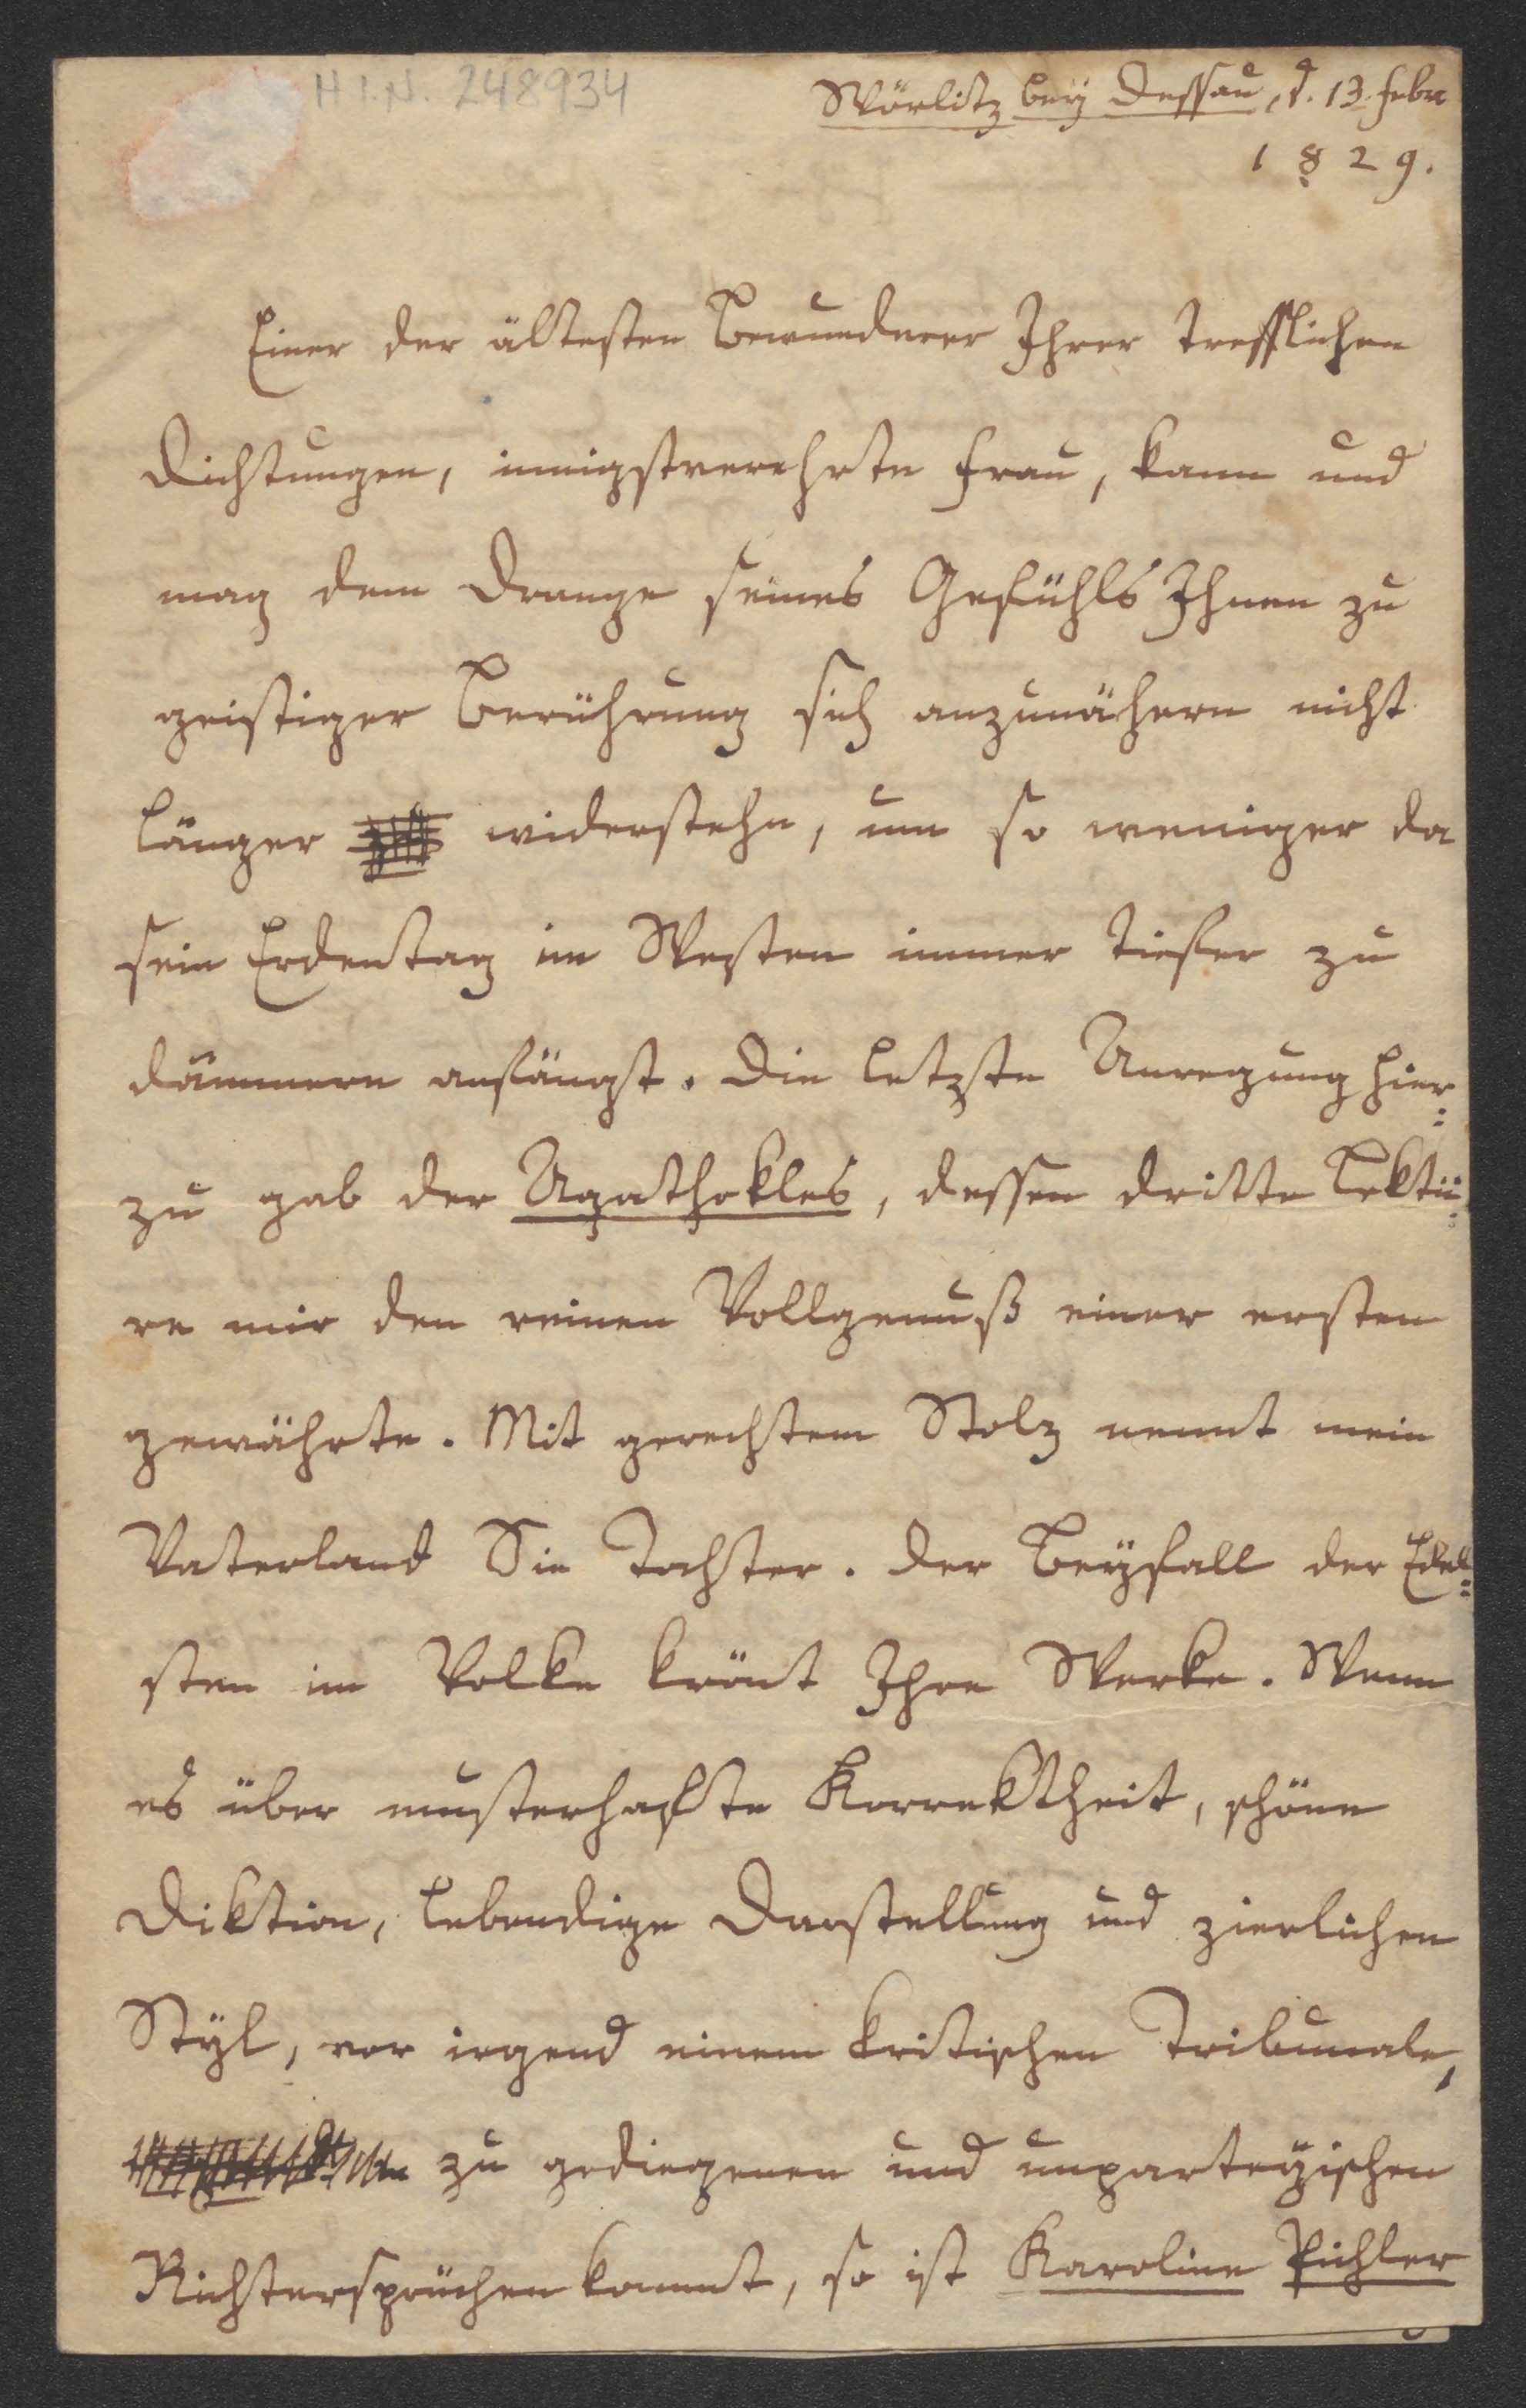 H.I.N. 248934
Wörlitz bey Dessau, d. 13. Febr.
1829.
Einer der ältesten Bewunderer Ihrer trefflichen
Dichtungen, innigstverehrte Frau, kann und
mag dem Drange seines Gefühls Ihnen zu
geistiger Berührung sich anzunähern nicht
länger widerstehn, um so weniger da
sein Erdentag im Westen immer tiefer zu
dämmern anfängt. Die letzte Anregung hier=
zu gab der Agathokles, dessen dritte Lektü=
re mir den reinen Vollgenuß einer ersten
gewährte. Mit gerechtem Stolz nennt mein
Vaterland Sie Tochter. Der Beyfall der Edel=
sten im Volke krönt Ihre Werke. Wenn
es über musterhafte Korrektheit, schöne
Diktion, lebendige Darstellung und zierlichen
Styl, vor irgend einem kritischen Tribunale,
zu gediegenen und unparteyischen
Richtersprüchen kommt, so ist Karoline Pichler